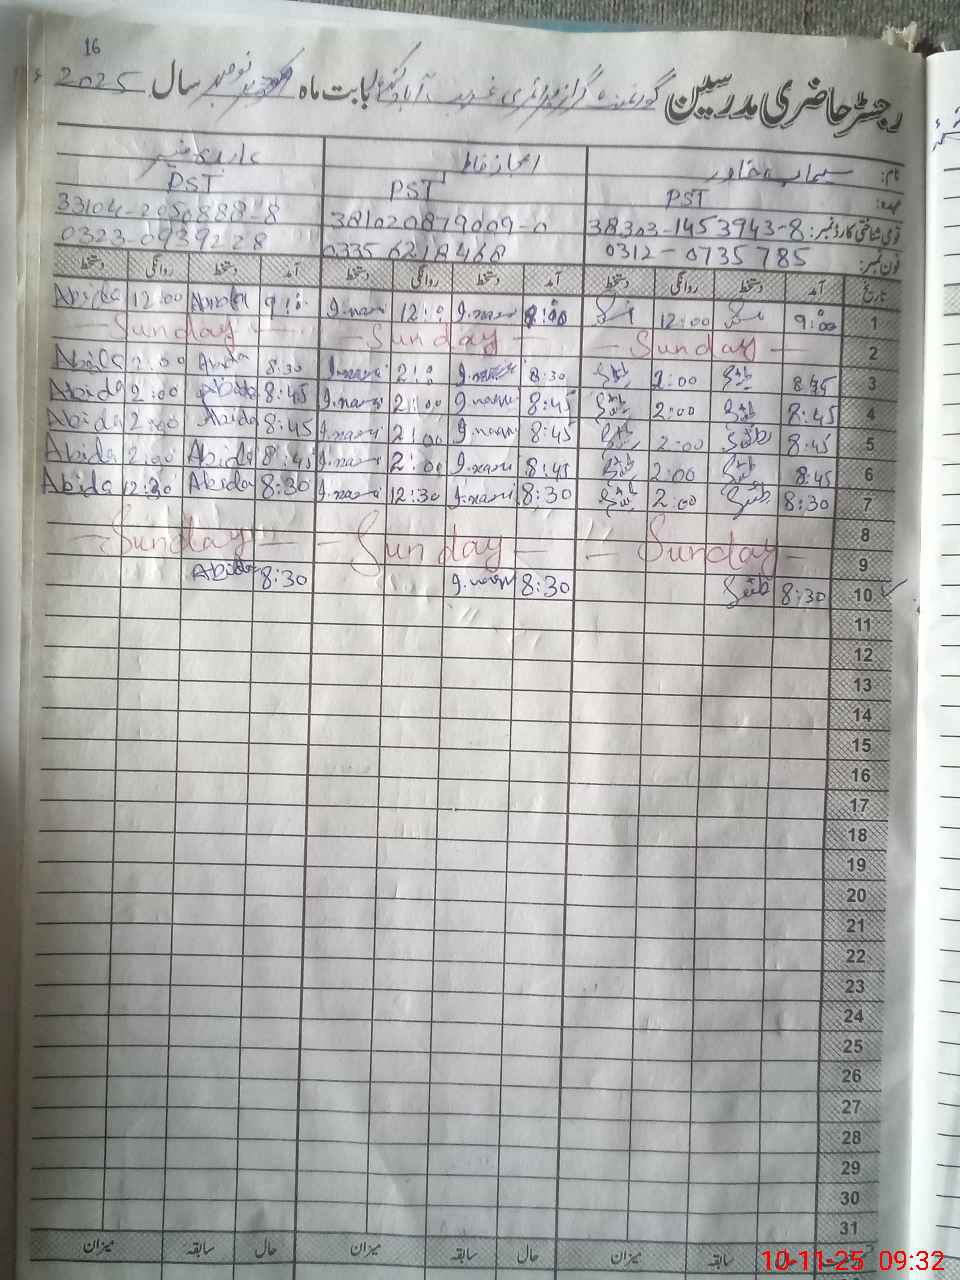 16
رجسٹر حاضری مدرسین گورنمنٹ گرلز پرائمری غریب آباد بابت ماہ نومبر سال 2025ء
نام: سیماب خاور اعجاز فاطمہ عابدہ
عہدہ: PST PST PST
قومی شناختی کارڈ نمبر: 38303-1453943-8 381020879009-0 33104-2050888-8
فون نمبر: 0312-0735785 0335 6218468 0323-0939228
تاریخ آمد دستخط روانگی دستخط آمد دستخط روانگی دستخط آمد دستخط روانگی دستخط
1 9:00 12:00 9:00 12:00 9:00 Abida 12:00 Abida
2 Sunday Sunday Sunday
3 8:45 2:00 8:30 2:00 8:30 Abida 2:00 Abida
4 8:45 2:00 8:45 2:00 8:45 Abida 2:00 Abida
5 8:45 2:00 8:45 2:00 8:45 Abida 2:00 Abida
6 8:45 2:00 8:45 2:00 8:45 Abida 2:00 Abida
7 8:30 2:00 8:30 12:30 8:30 Abida 12:30 Abida
8
9 Sunday Sunday Sunday
10 8:30 8:30 8:30 Abida
11
12
13
14
15
16
17
18
19
20
21
22
23
24
25
26
27
28
29
30
31
سابقہ میزان حال سابقہ میزان حال سابقہ میزان
10-11-25 09:32